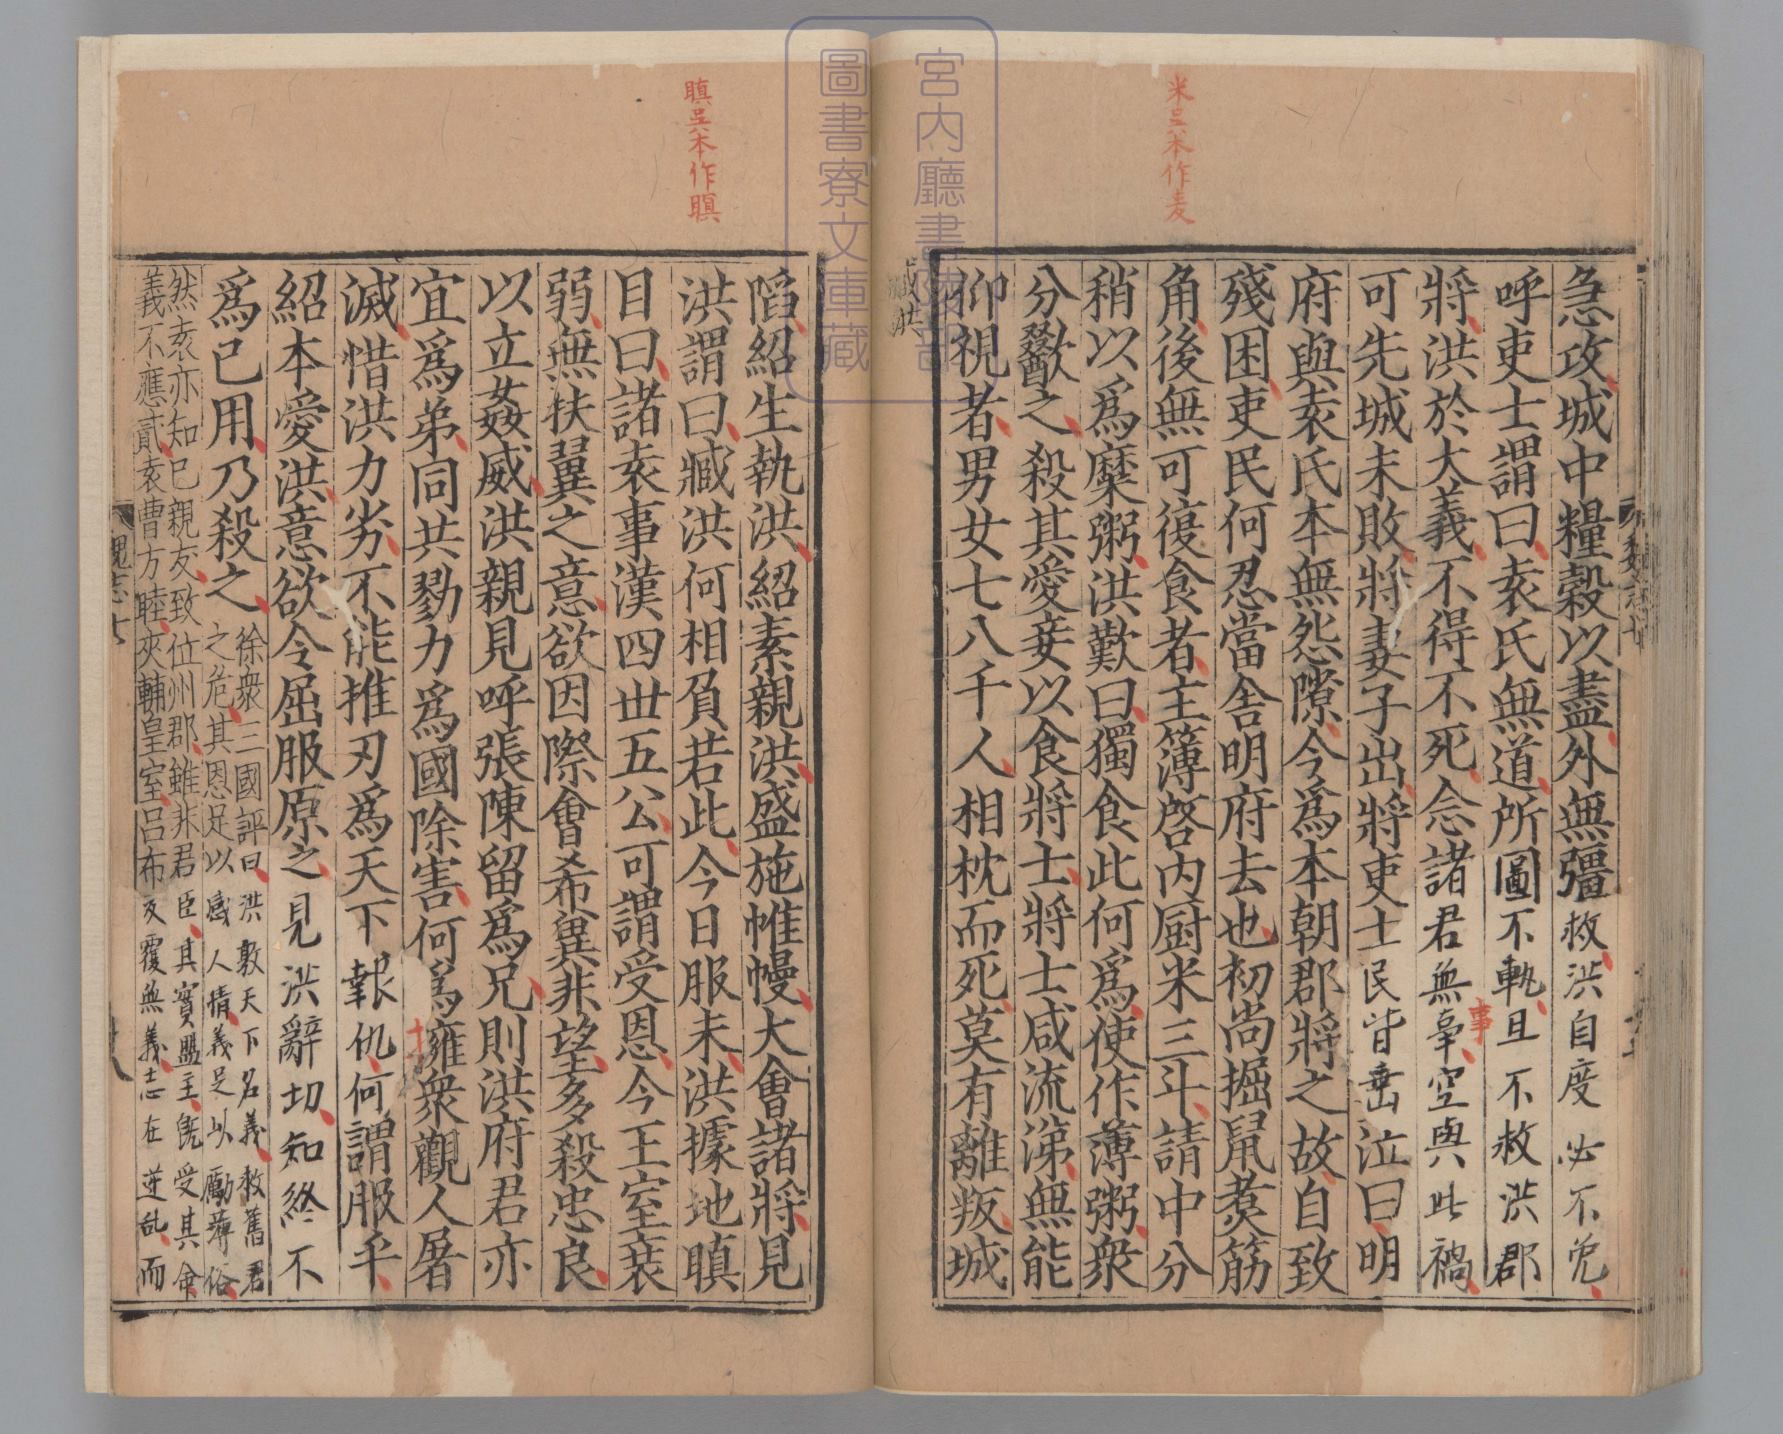 米吳本作麦
急攻城中糧穀以盡外無彊救洪自度必不免
呼吏士謂曰袁氏無道所圖不軌且不救洪郡
將洪於大義不得不死念諸君無辜空與此禍
事
可先城未敗將妻子出將吏士民皆垂泣曰明
府與袁氏本無怨隙今爲本朝郡將之故自致
殘困吏民何忍當舍明府去也初尚掘鼠煑筋
角後無可復食者主簿啓內厨米三斗請中分
稍以爲糜粥洪歎曰獨食此何爲使作薄粥衆
分歠之殺其愛妾以食將士將士咸流涕無能
仰視者男女七八千人相枕而死莫有離叛城
臧洪
宮內廳書陵部
圖書寮文庫藏
瞋吳本作瞑
陷紹生執洪紹素親洪盛施帷幔大會諸將見
洪謂曰臧洪何相負若此今日服未洪據地瞋
目曰諸袁事漢四世五公可謂受恩今王室衰
弱無扶翼之意欲因際會希冀非望多殺忠良
以立姦威洪親見呼張陳留爲兄則洪府君亦
宜爲弟同共勠力爲國除害何爲擁衆觀人屠
滅惜洪力劣不能推刃爲天下報仇何謂服乎
紹本愛洪意欲令屈服原之見洪辭切知終不
爲己用乃殺之
徐衆三國評曰洪敦天下名義救舊君
之危其恩足以感人情義足以勵薄俗
然袁亦知已親友致位州郡雖非君臣其實盟主旣受其命
義不應貳袁曹方睦夾輔皇室呂布反覆無義志在逆乱而
魏志七